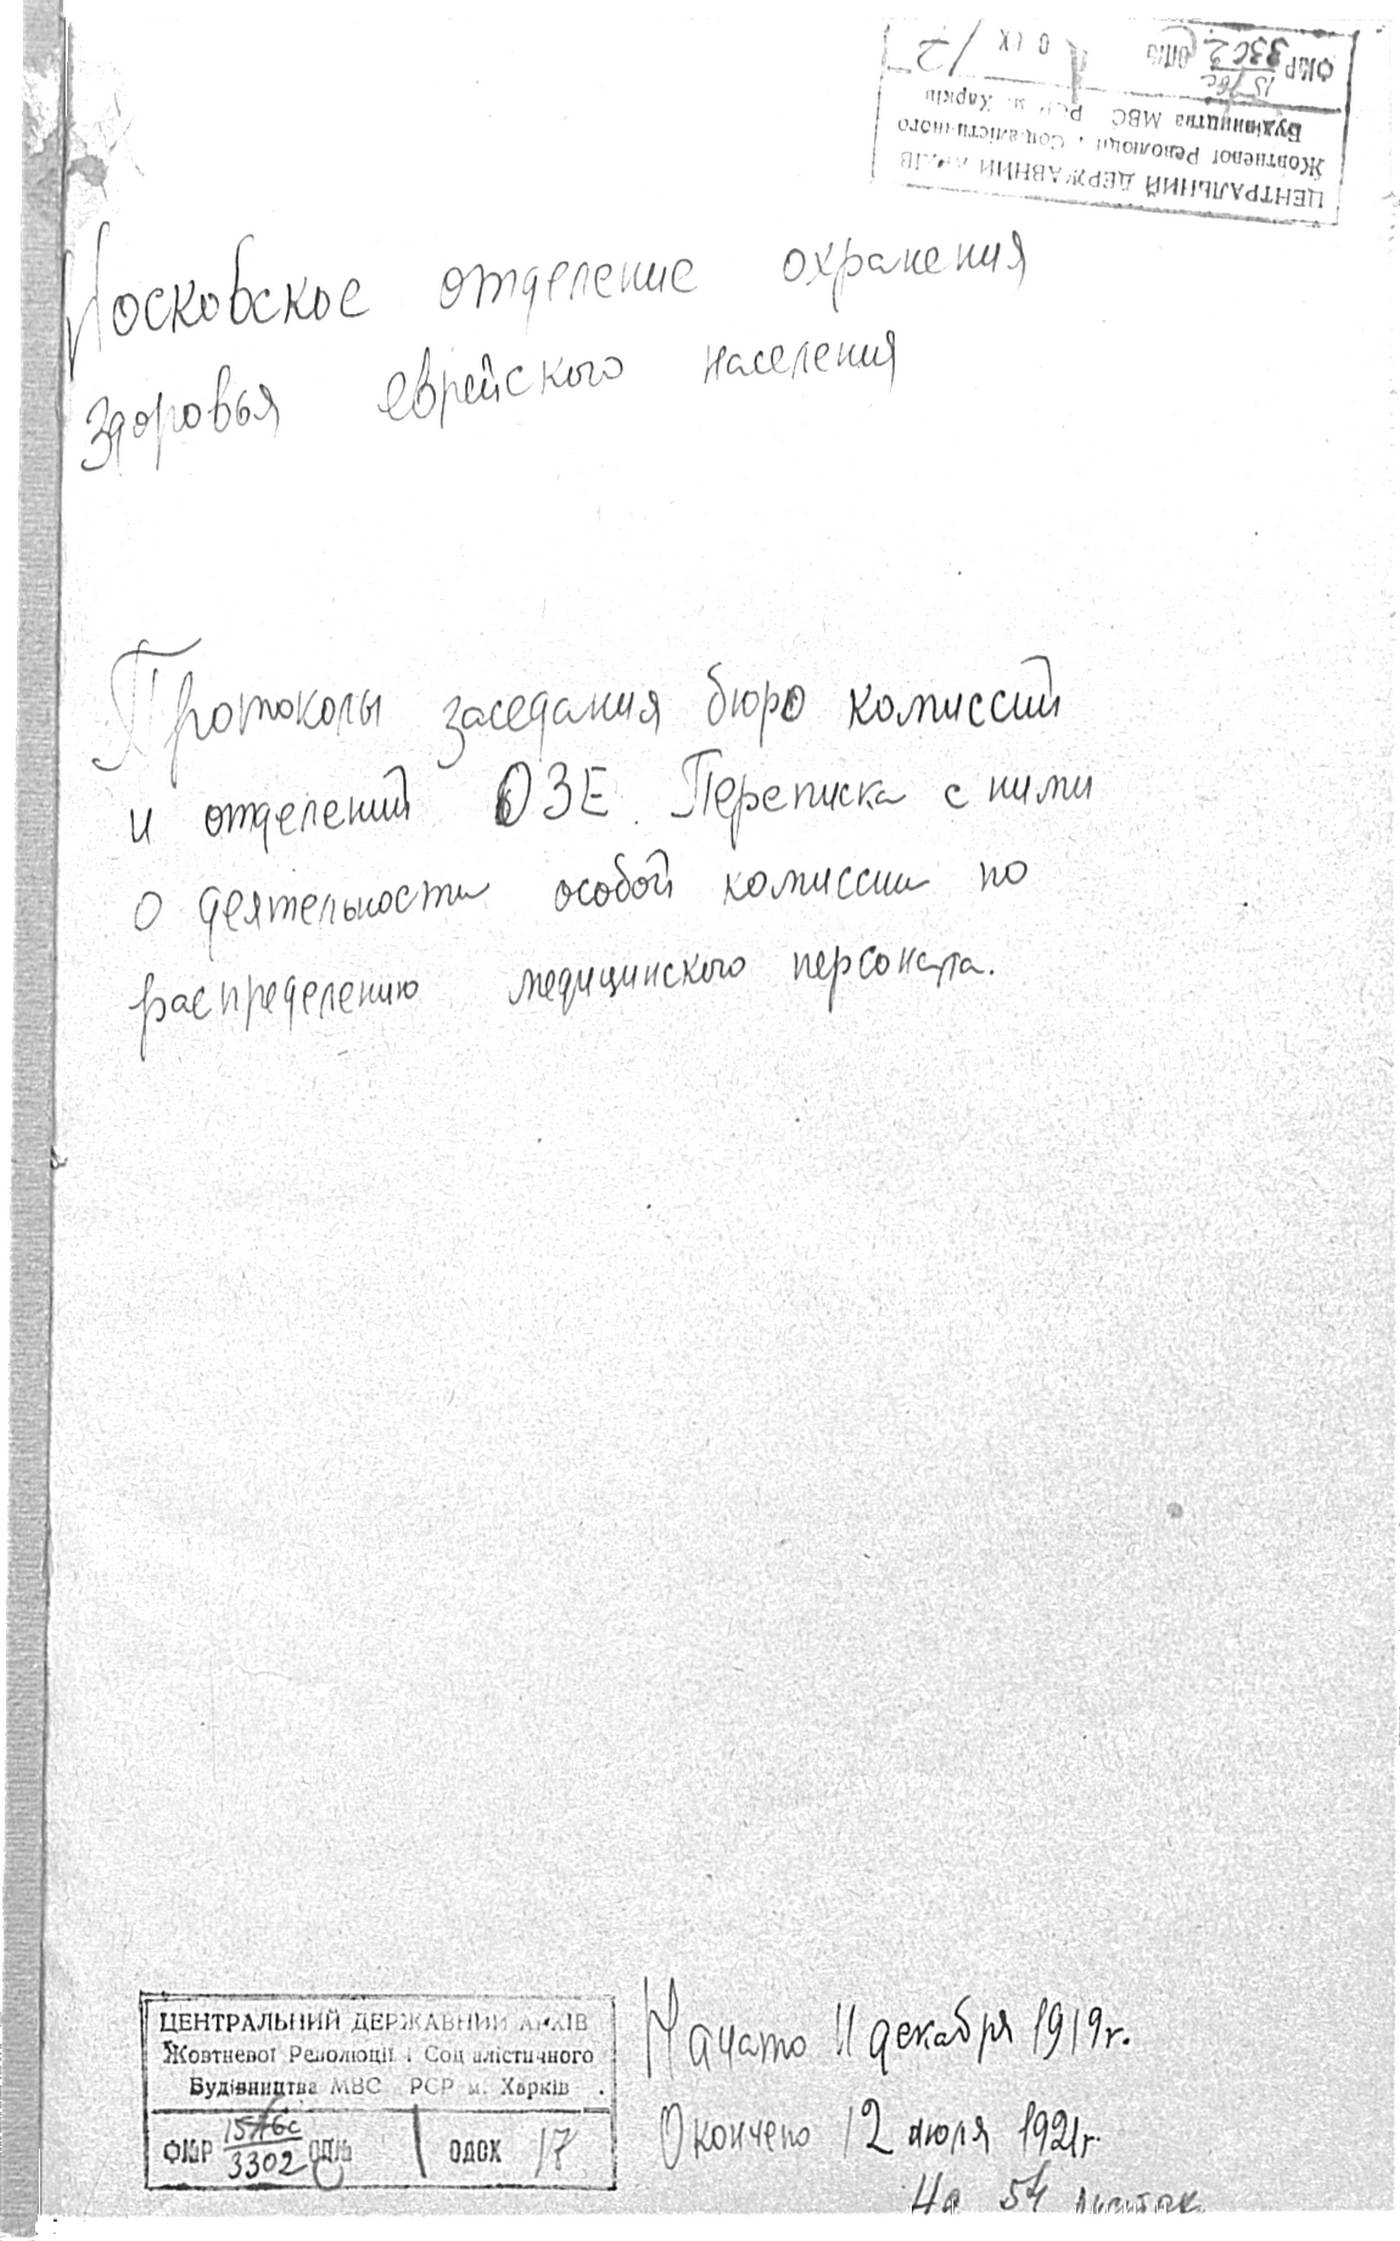 ЦЕНТРАЛЬНИЙ ДЕРЖАВНИЙ АРХІВ
Жовтневої Революції і Соціалістичного
Будівництва МВС РСР м. Харків
Московское отделение охранения
здоровья еврейского населения
Протоколы заседания бюро комиссий
и отделений ОЗЕ. Переписка с ними
о деятельности особой комиссии по
распределению медицинского персонала.
ЦЕНТРАЛЬНИЙ ДЕРЖАВНИЙ АРХІВ
Жовтневої Революції і Соціалістичного
Будівництва МВС РСР м. Харків
Ф№Р 3302 ОП№ 1 ОДОХ 17
Начато 11 декабря 1919 г.
Окончено 12 июля 1921 г.
На 54 листах